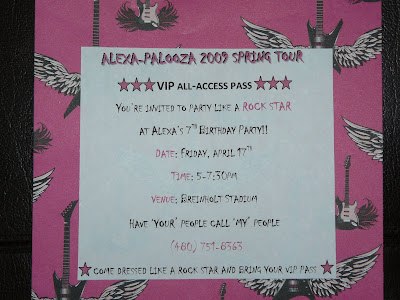 ALEXA-PALOOZA 2009 SPRING TOUR
★★★VIP ALL-ACCESS PASS★★★
YOU'RE INVITED TO PARTY LIKE A ROCK STAR
AT ALEXA'S 7TH BIRTHDAY PARTY!!
DATE: FRIDAY, APRIL 17TH
TIME: 5-7:30PM
VENUE: BREINHOLT STADIUM
HAVE 'YOUR' PEOPLE CALL 'MY' PEOPLE
(480) 751-8363
★COME DRESSED LIKE A ROCK STAR AND BRING YOUR VIP PASS★